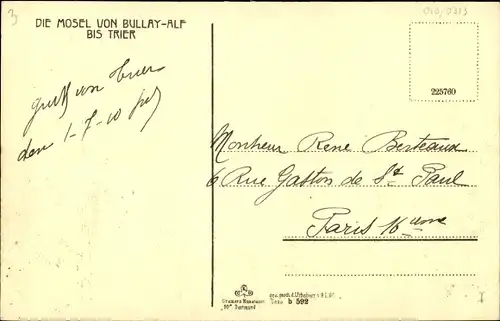 3
DIE MOSEL VON BULLAY-ALF
BIS TRIER
225760
Gruß von Trier
den 1-7-10
Monsieur Rene Berteaux
6 Rue Gaston de St Paul
Paris 16eme
b 592